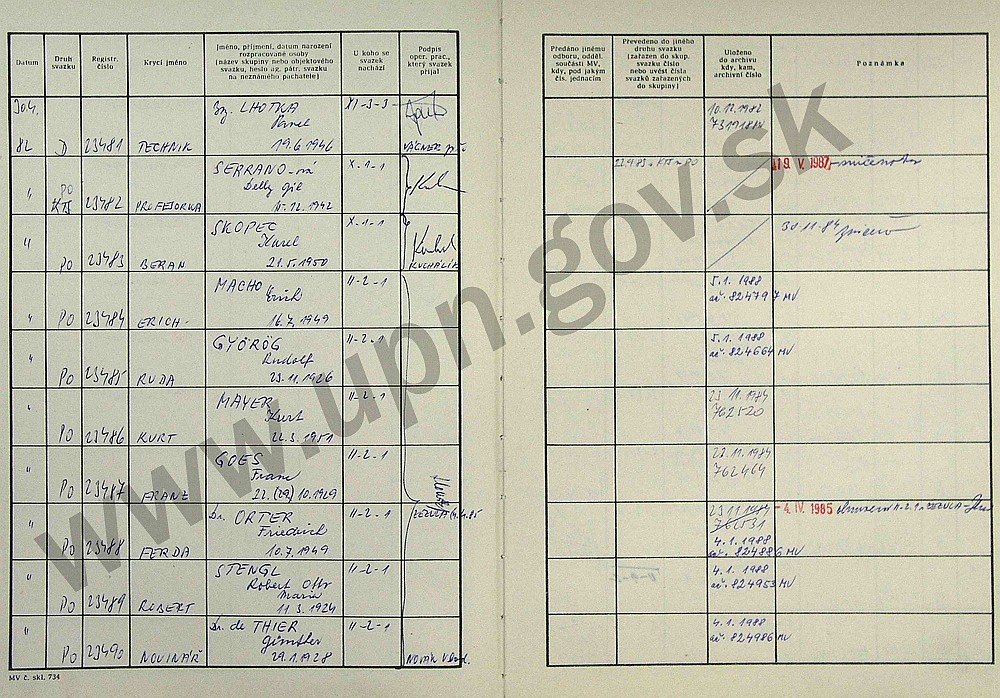 Datum
Druh svazku
Registr. číslo
Krycí jméno
Jméno, příjmení, datum narození
rozpracované osoby
(název skupiny nebo objektového
svazku, heslo ag. pátr. svazku
na neznámého pachatele)
U koho se
svazek
nachází
Podpis
oper. prac.,
který svazek
přijal
Předáno jinému
odboru, odděl.
součásti MV,
kdy, pod jakým
čís. jednacím
Převedeno do jiného
druhu svazku
(zařazen do skup.
svazku číslo
nebo uvést čísla
svazků zařazených
do skupiny)
Uloženo
do archivu
kdy, kam,
archivní číslo
Poznámka
30.4. Ing. LHOTKA XI-3-3 10.12.1982
Pavel 731918 MV
82 D 23481 TECHNIK 19.6.1946 VÁGNER
" PO SERRANO-vá X-1-1 19. V. 1987
Delly Gil
KTS 23482 PROFESORKA 12.1942
" SKOPEC X-1-1 30.11.84
Karel
PO 23483 BERAN 21.5.1950 KUCHÁLIK
MACHO II-2-1 5.1.1988
Erich 824797 MV
" PO 23484 ERICH 16.7.1949
" GYÖRÖG II-2-1 5.1.1988
Rudolf 824664 MV
PO 23485 RUDA 23.11.1926
" MAYER II-2-1 23.11.1984
Kurt 762520
PO 23486 KURT 22.3.1951
" GOES II-2-1 23.11.1984
Franc 762464
PO 23487 FRANZ 22.(29)10.1929
" Dr. ORTER II-2-1 ZEZULA 4.4.85 23.11.1984 -4. IV. 1985 II-2-1 ZEZULA
Friedrich 762531
PO 23488 FERDA 10.7.1949 4.1.1988
824886 MV
" STENGL II-2-1 4.1.1988
Robert Otto 824953 MV
Maria
PO 23489 ROBERT 11.3.1924
" Dr. de THIER II-2-1 4.1.1988
Günther 824986 MV
PO 23490 NOVINÁŘ 29.1.1928 NOVÁK
MV č. skl. 734
www.upn.gov.sk